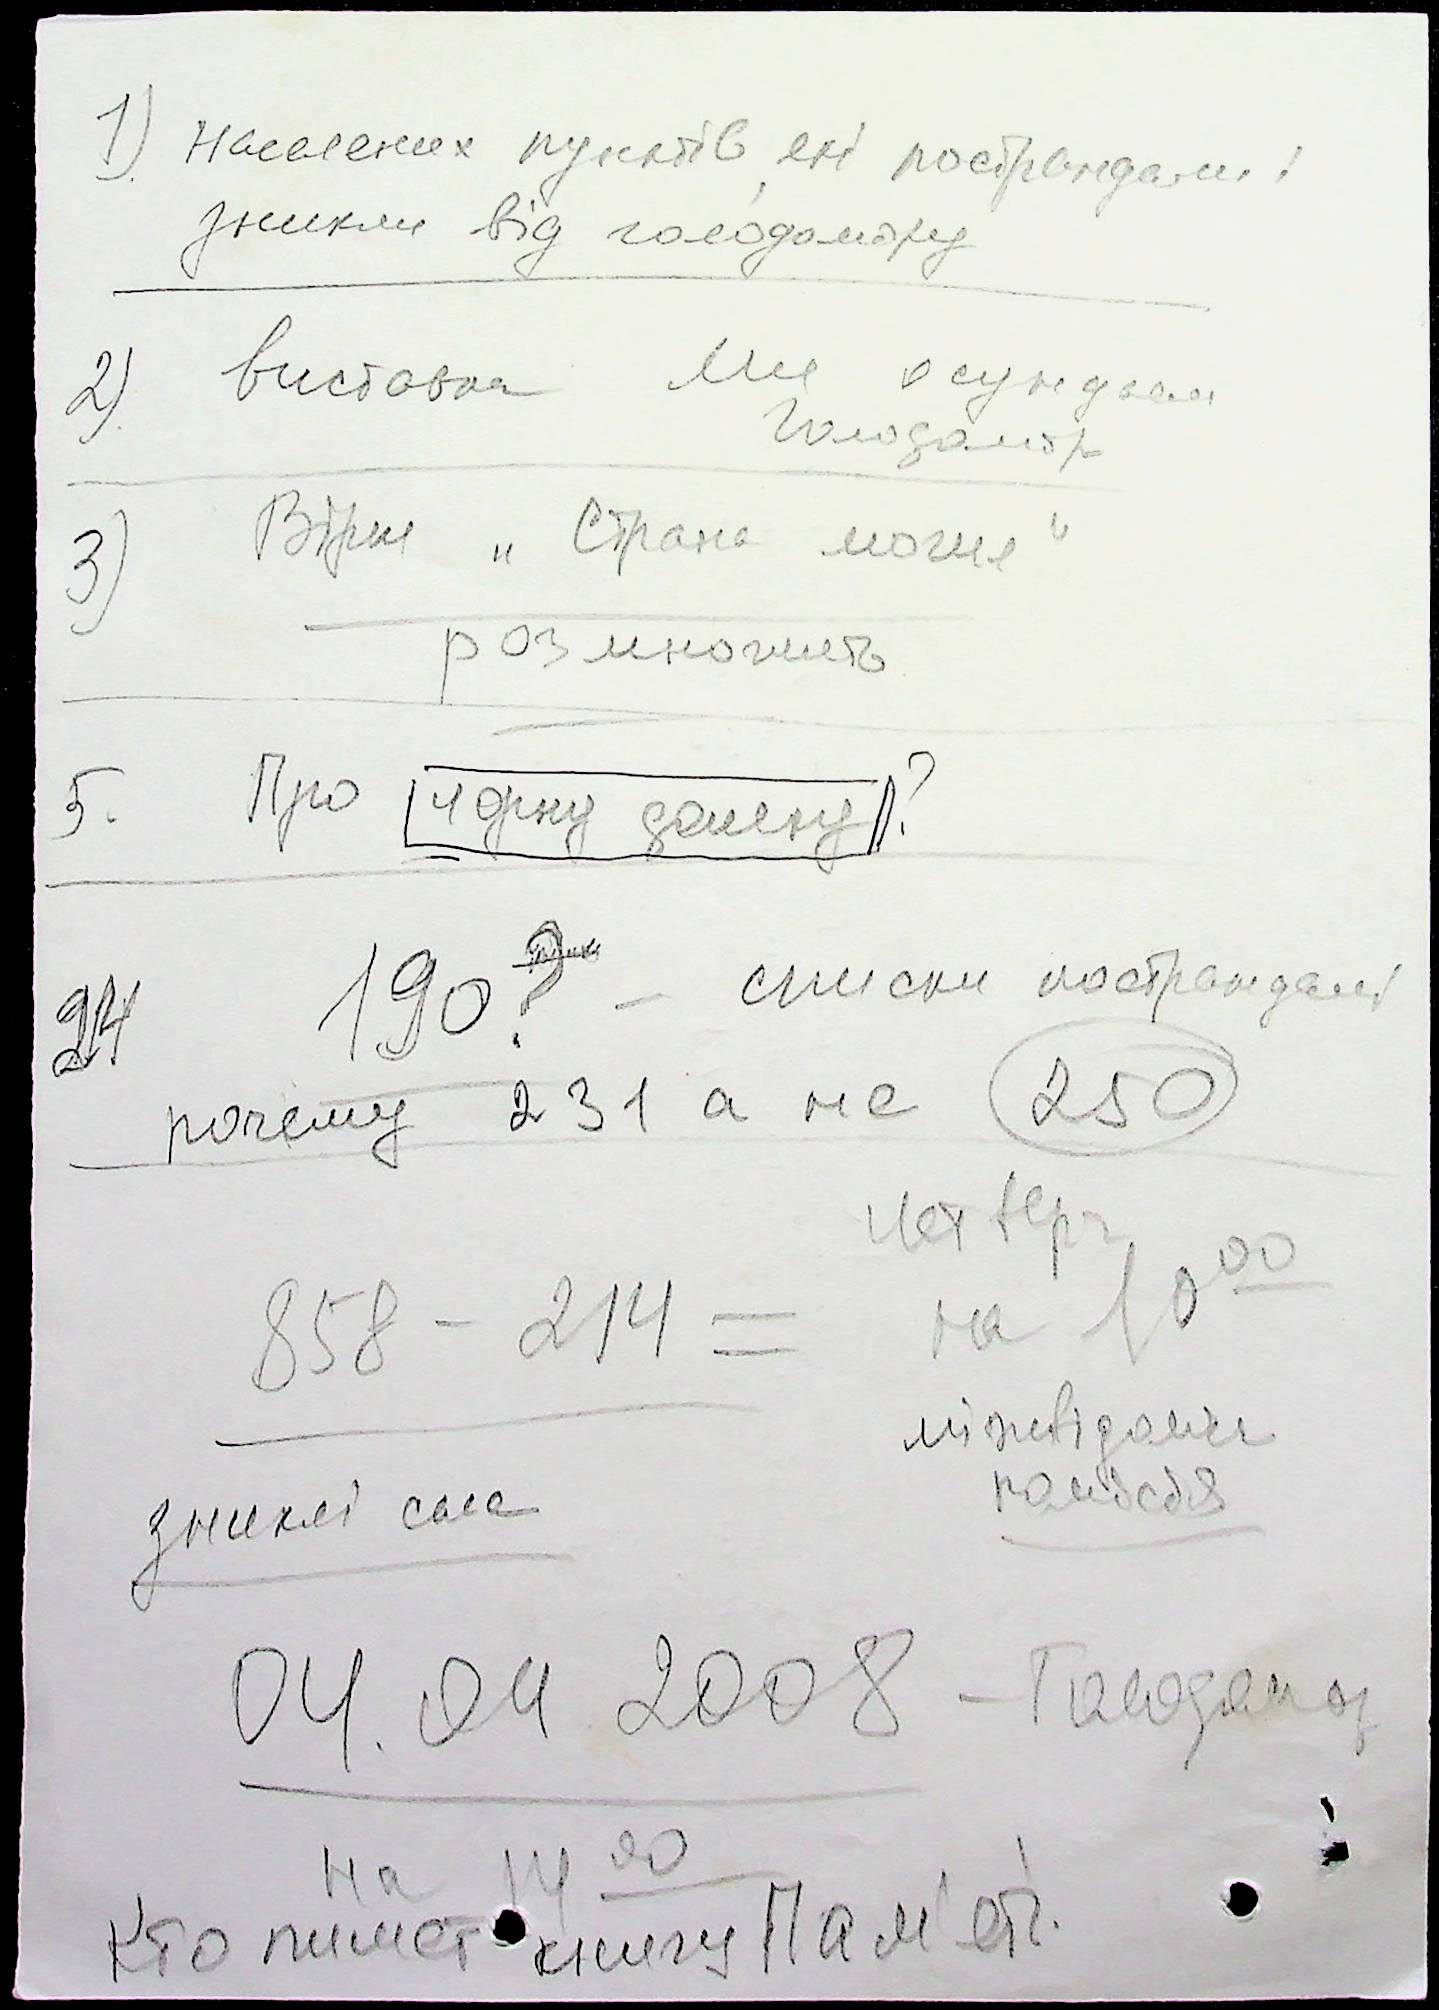 1) Населених пунктів, які постраждали і
зникли від голодомору
2) виставка Ми осуждаєм
Голодомор
3) Вірш "Страна могил"
розмножить
5. Про чорну долину?
190? - списки постраждалі
214
почему 231 а не 250
четверг
858 - 214 = на 10 00
міжвідомча
комісія
зниклі села
04.04 2008 - Голодомор
на 14 00
Кто пишет книгу Пам'яті.